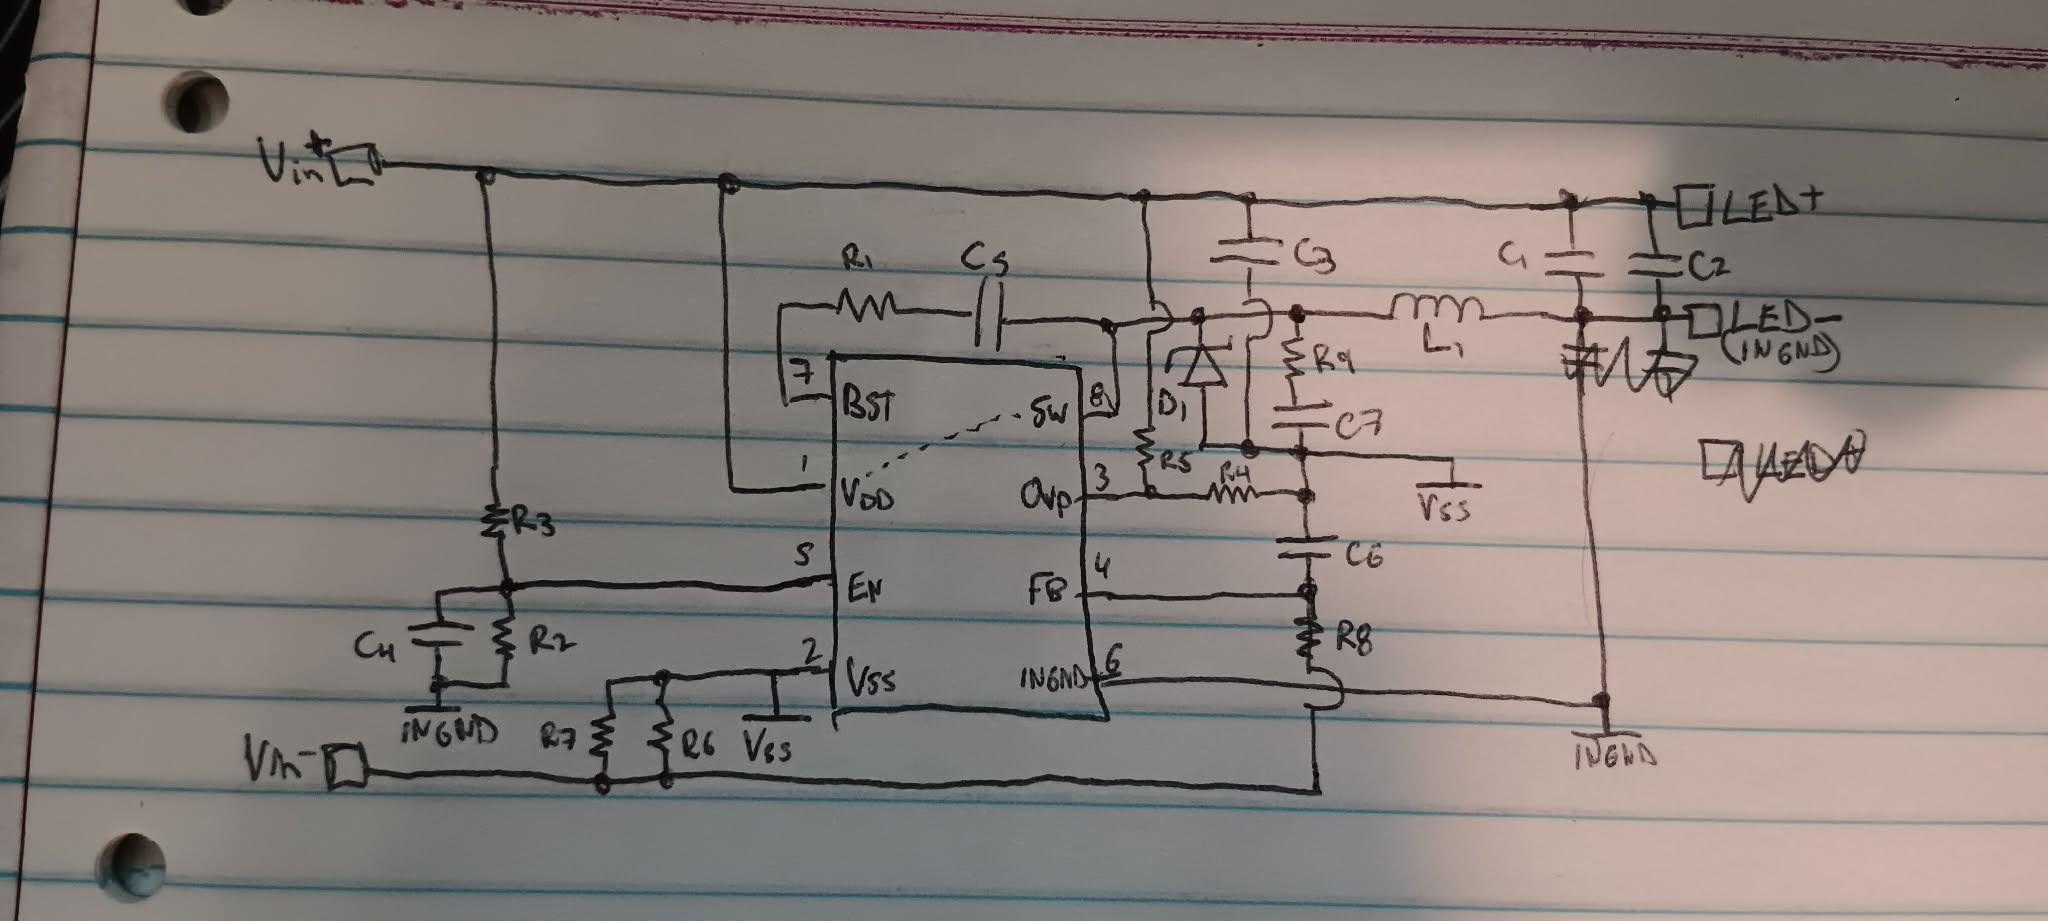 Vin+
LED+
R1
C5
C3
C1
C2
LED-
(INGND)
L1
R9
7
BST
SW
8
D1
C7
1
VDD
OVP
3
R5
R4
VSS
R3
5
EN
FB
4
C6
C4
R2
2
VSS
INGND
6
R8
INGND
R7
R6
VSS
Vin-
INGND